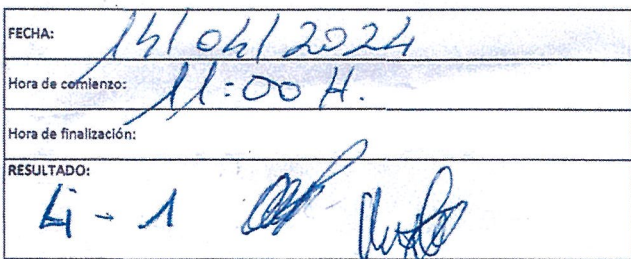 FECHA: 14/04/2024
Hora de comienzo: 11:00 H.
Hora de finalización:
RESULTADO:
4 - 1